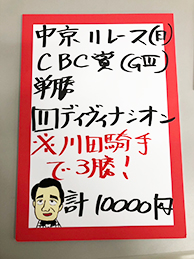 中京11レース(日)
CBC賞(GⅢ)
単勝
[11]ディヴィナシオン
※川田騎手
で3勝!
計10000円